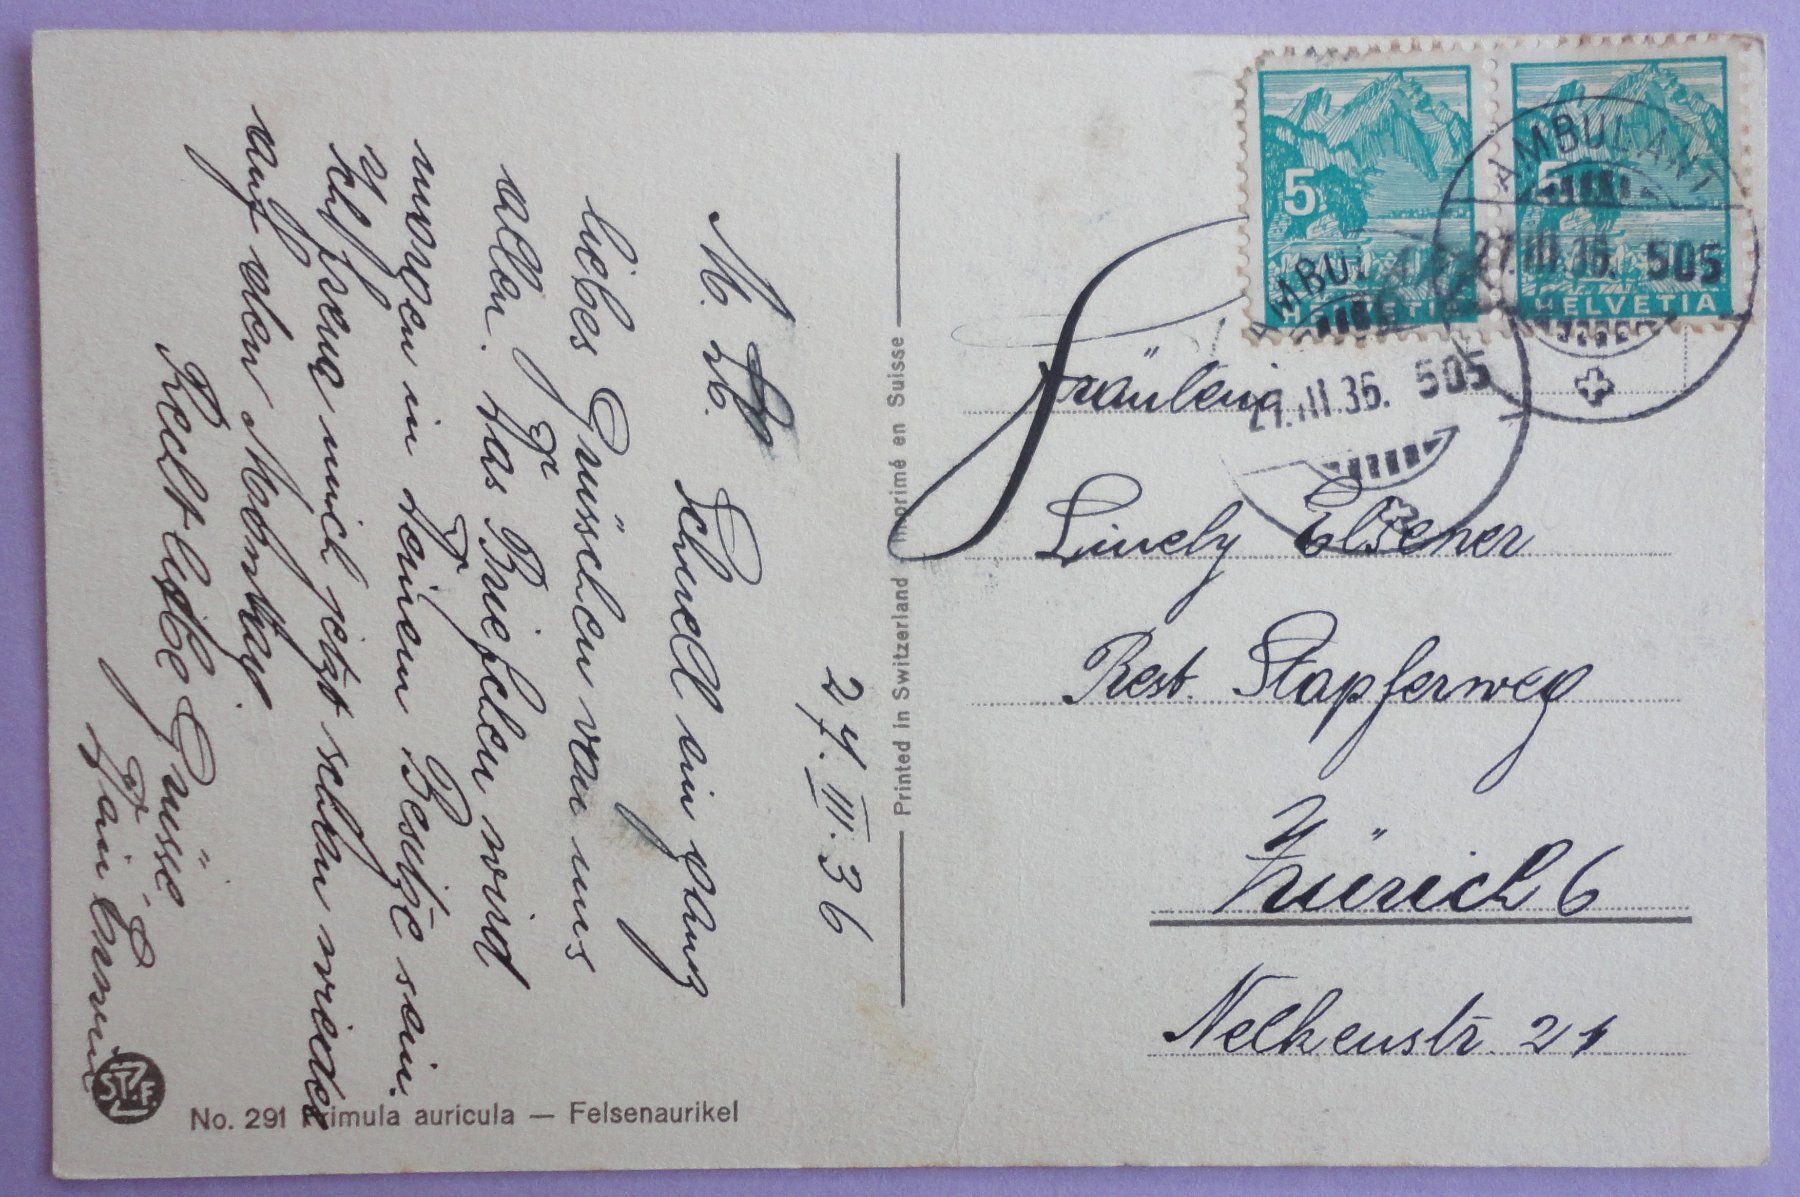 27. III. 36
M. lb.
Schnell ein ganz
liebes Grüsschen von uns
allen. Das Brieflein wird
morgen in Deinem Besitze sein.
Ich freue mich jetzt schon wieder
auf den Montag.
Recht liebe Grüsse
Dein Erwin
No. 291 Primula auricula — Felsenaurikel
ST.Z.F.
Printed in Switzerland Imprimé en Suisse
5
HELVETIA
5
HELVETIA
AMBULANT
27.III.36. 505
AMBULANT
27.III.36. 505
Fräulein
Linely Elsener
Rest. Stapferweg
Zürich 6
Nelkenstr. 21